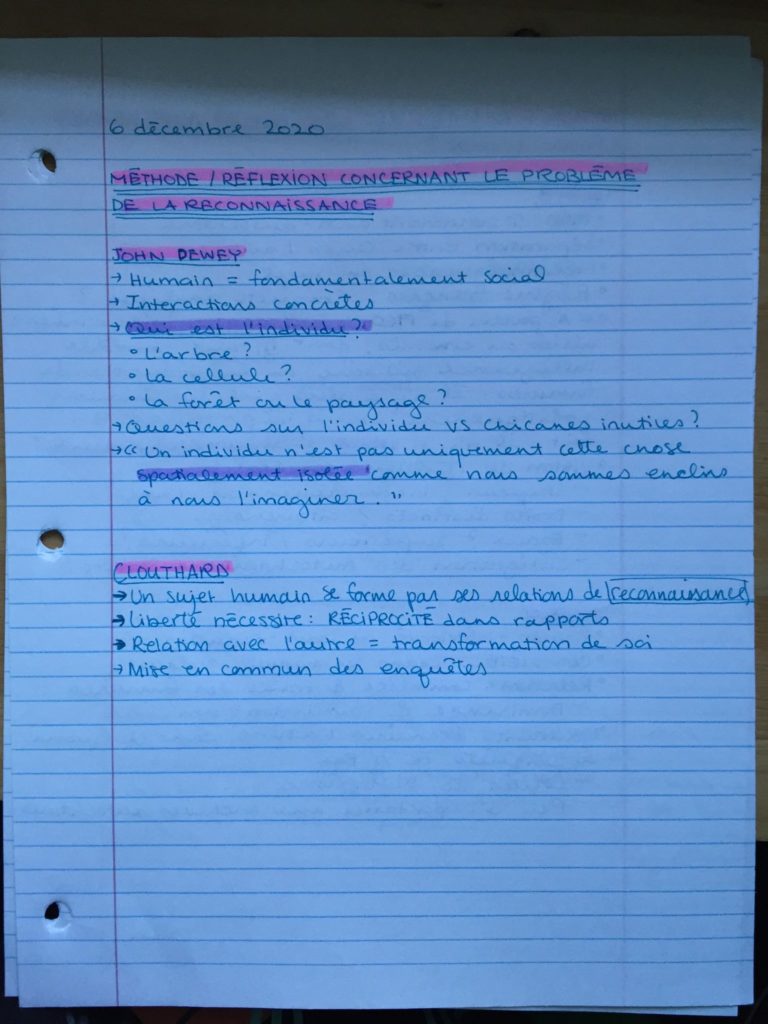 6 décembre 2020
MÉTHODE / RÉFLEXION CONCERNANT LE PROBLÈME
DE LA RECONNAISSANCE
JOHN DEWEY
→ Humain = fondamentalement social
→ Interactions concrètes
→ Qui est l'individu ?
° L'arbre ?
° La cellule ?
° La forêt ou le paysage ?
→ Questions sur l'individu vs chicanes inutiles ?
→ « Un individu n'est pas uniquement cette chose
spatialement isolée comme nous sommes enclins
à nous l'imaginer. »
CLOUTHARD
→ Un sujet humain se forme par ses relations de reconnaissance
→ Liberté nécessite : RÉCIPROCITÉ dans rapports
→ Relation avec l'autre = transformation de soi
→ Mise en commun des enquêtes